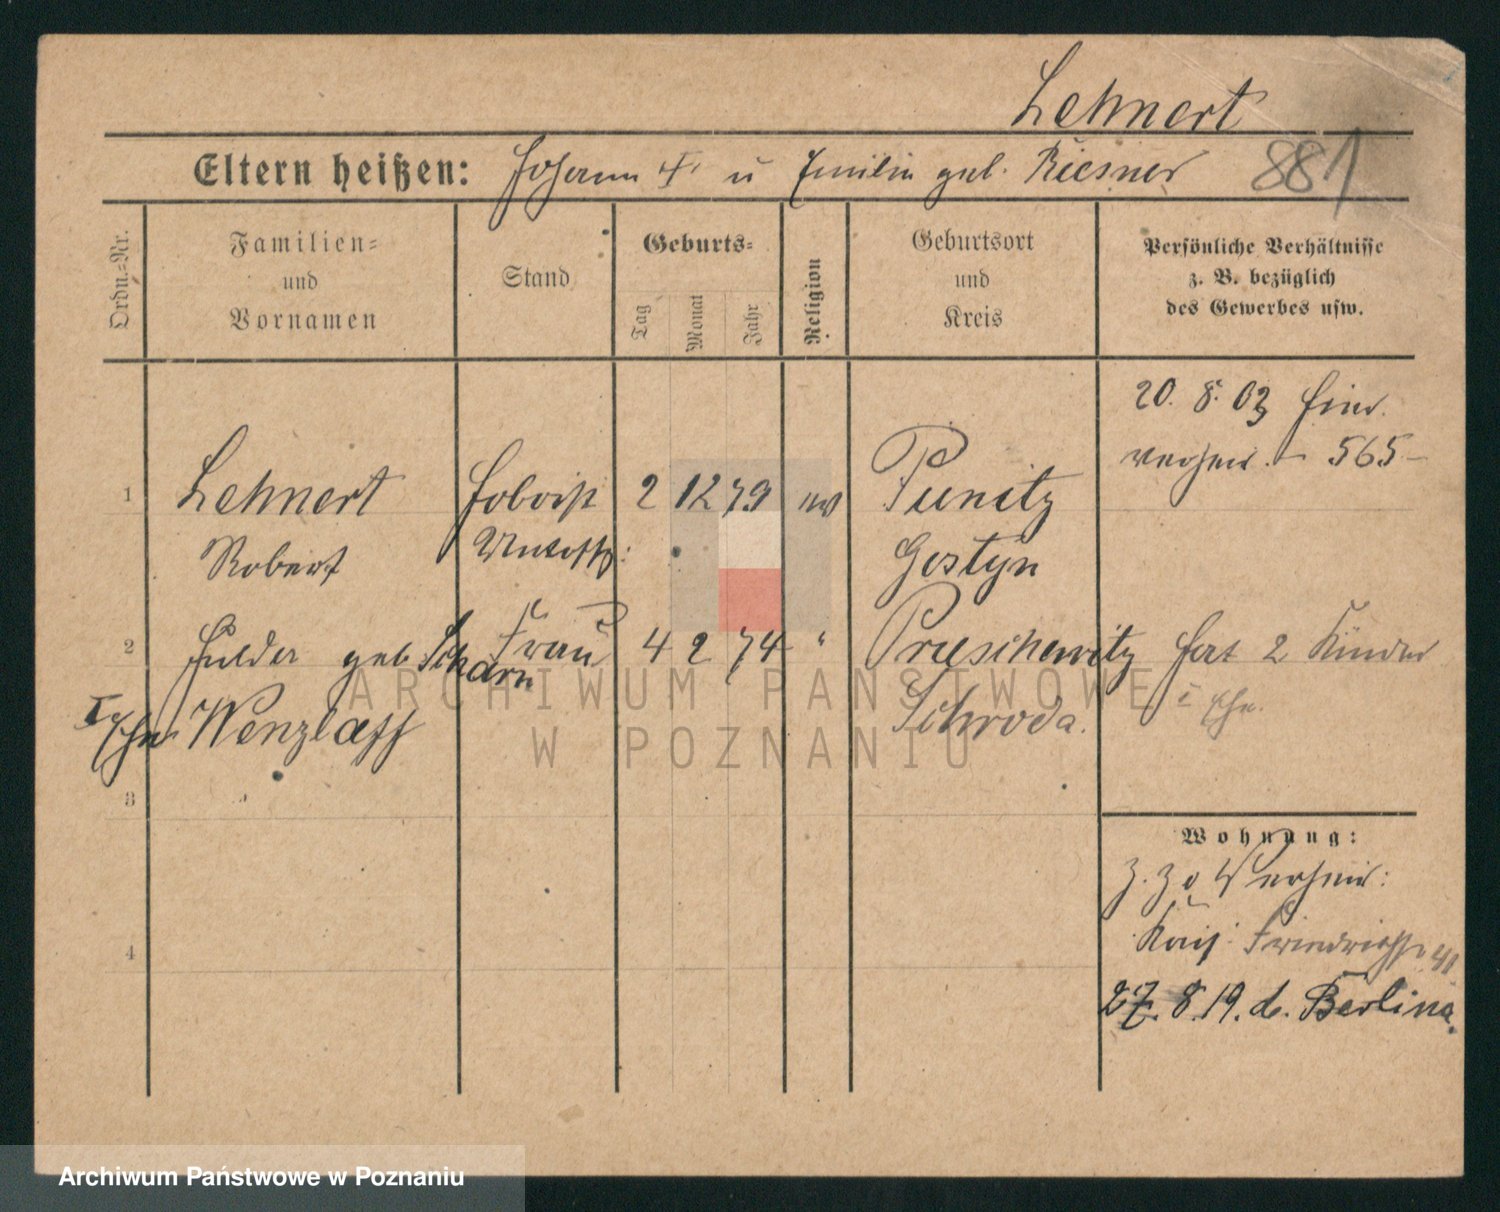 Lehnert
Eltern heißen: Johann † u Emilie geb. Riesner 881
Ordn.-Nr.
Familien-
und
Vornamen
Stand
Geburts-
Tag
Monat
Jahr
Religion
Geburtsort
und
Kreis
Persönliche Verhältnisse
z. B. bezüglich
des Gewerbes usw.
20. 8. 03
565
1 Lehnert Hoboist 2 12 79 ev Punitz
Robert Unteroffz: Gostyn
2 Hulda geb. Scharn Frau 4 2 74 " Pruschewitz hat 2 Kinder
I Ehe Wenzlaff Schroda. I Ehe.
3
Wohnung:
4
Friedrichstr
27. 8. 19. d. Berlin
ARCHIWUM PAŃSTWOWE
W POZNANIU
Archiwum Państwowe w Poznaniu